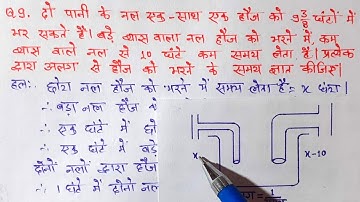 Q.9. दो पानी के नल एक-साथ एक हौज को 9 3/8 घंटों में
भर सकते हैं। बड़े व्यास वाले नल हौज को भरने में, कम
व्यास वाले नल से 10 घंटे कम समय लेता है। प्रत्येक
द्वारा अलग से हौज को भरने के समय ज्ञात कीजिए।
हल: छोटा नल हौज को भरने में समय लेता है = x घंटा।
∴ बड़ा नल हौज को
∴ एक घंटे में छो
∴ एक घंटे में बड़े
दोनों नलों द्वारा हौज
∴ 1 घंटा में दोनों नल
x
x-10